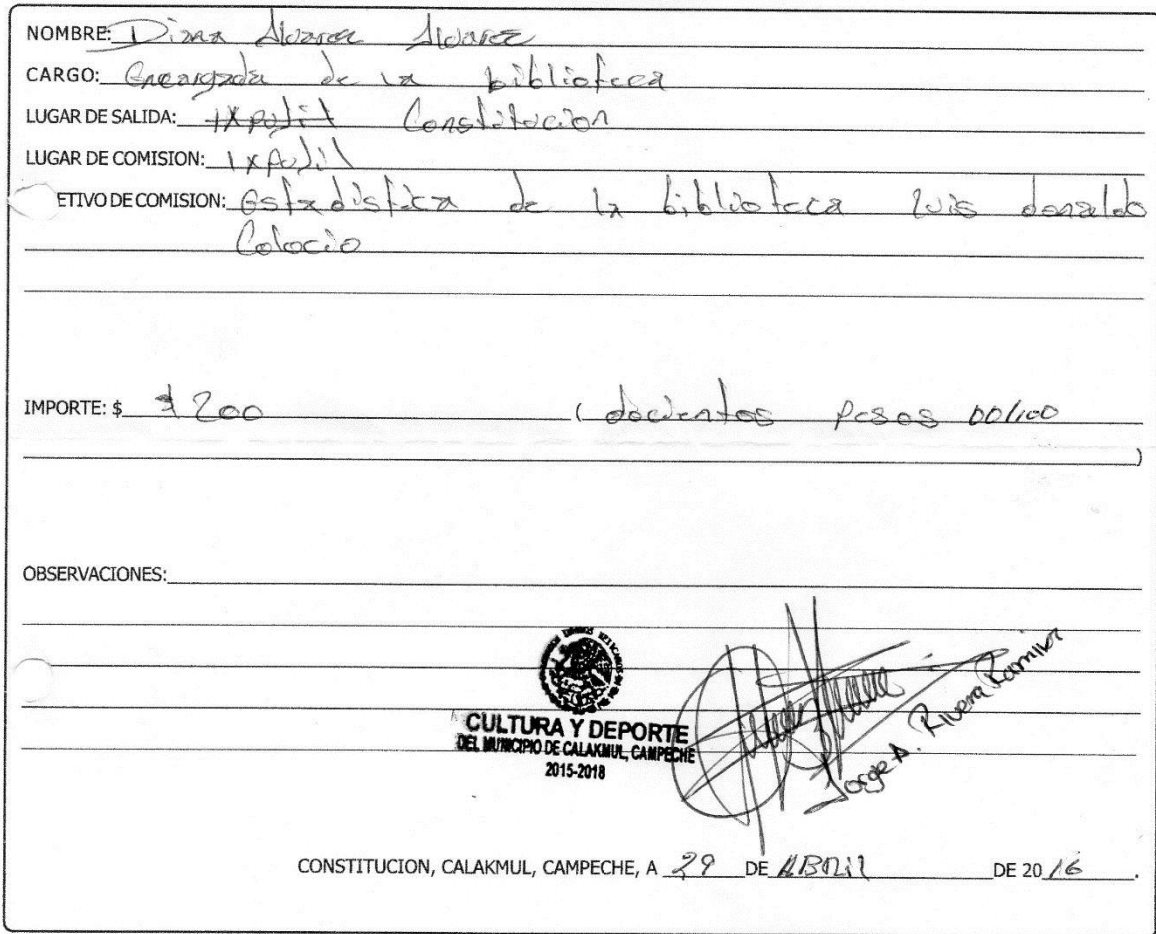 NOMBRE: Diana Alvarez Alvarez
CARGO: Encargada de la biblioteca
LUGAR DE SALIDA: Ixpujil Constitucion
LUGAR DE COMISION: Ixpujil
ETIVO DE COMISION: Estadistica de la biblioteca luis donaldo
Colocio
IMPORTE: $ $200 ( docientos pesos 00/100
)
OBSERVACIONES:
CULTURA Y DEPORTE
DEL MUNICIPIO DE CALAKMUL, CAMPECHE
2015-2018
Jorge A. Rivera Ramirez
CONSTITUCION, CALAKMUL, CAMPECHE, A 29 DE ABRIL DE 2016.